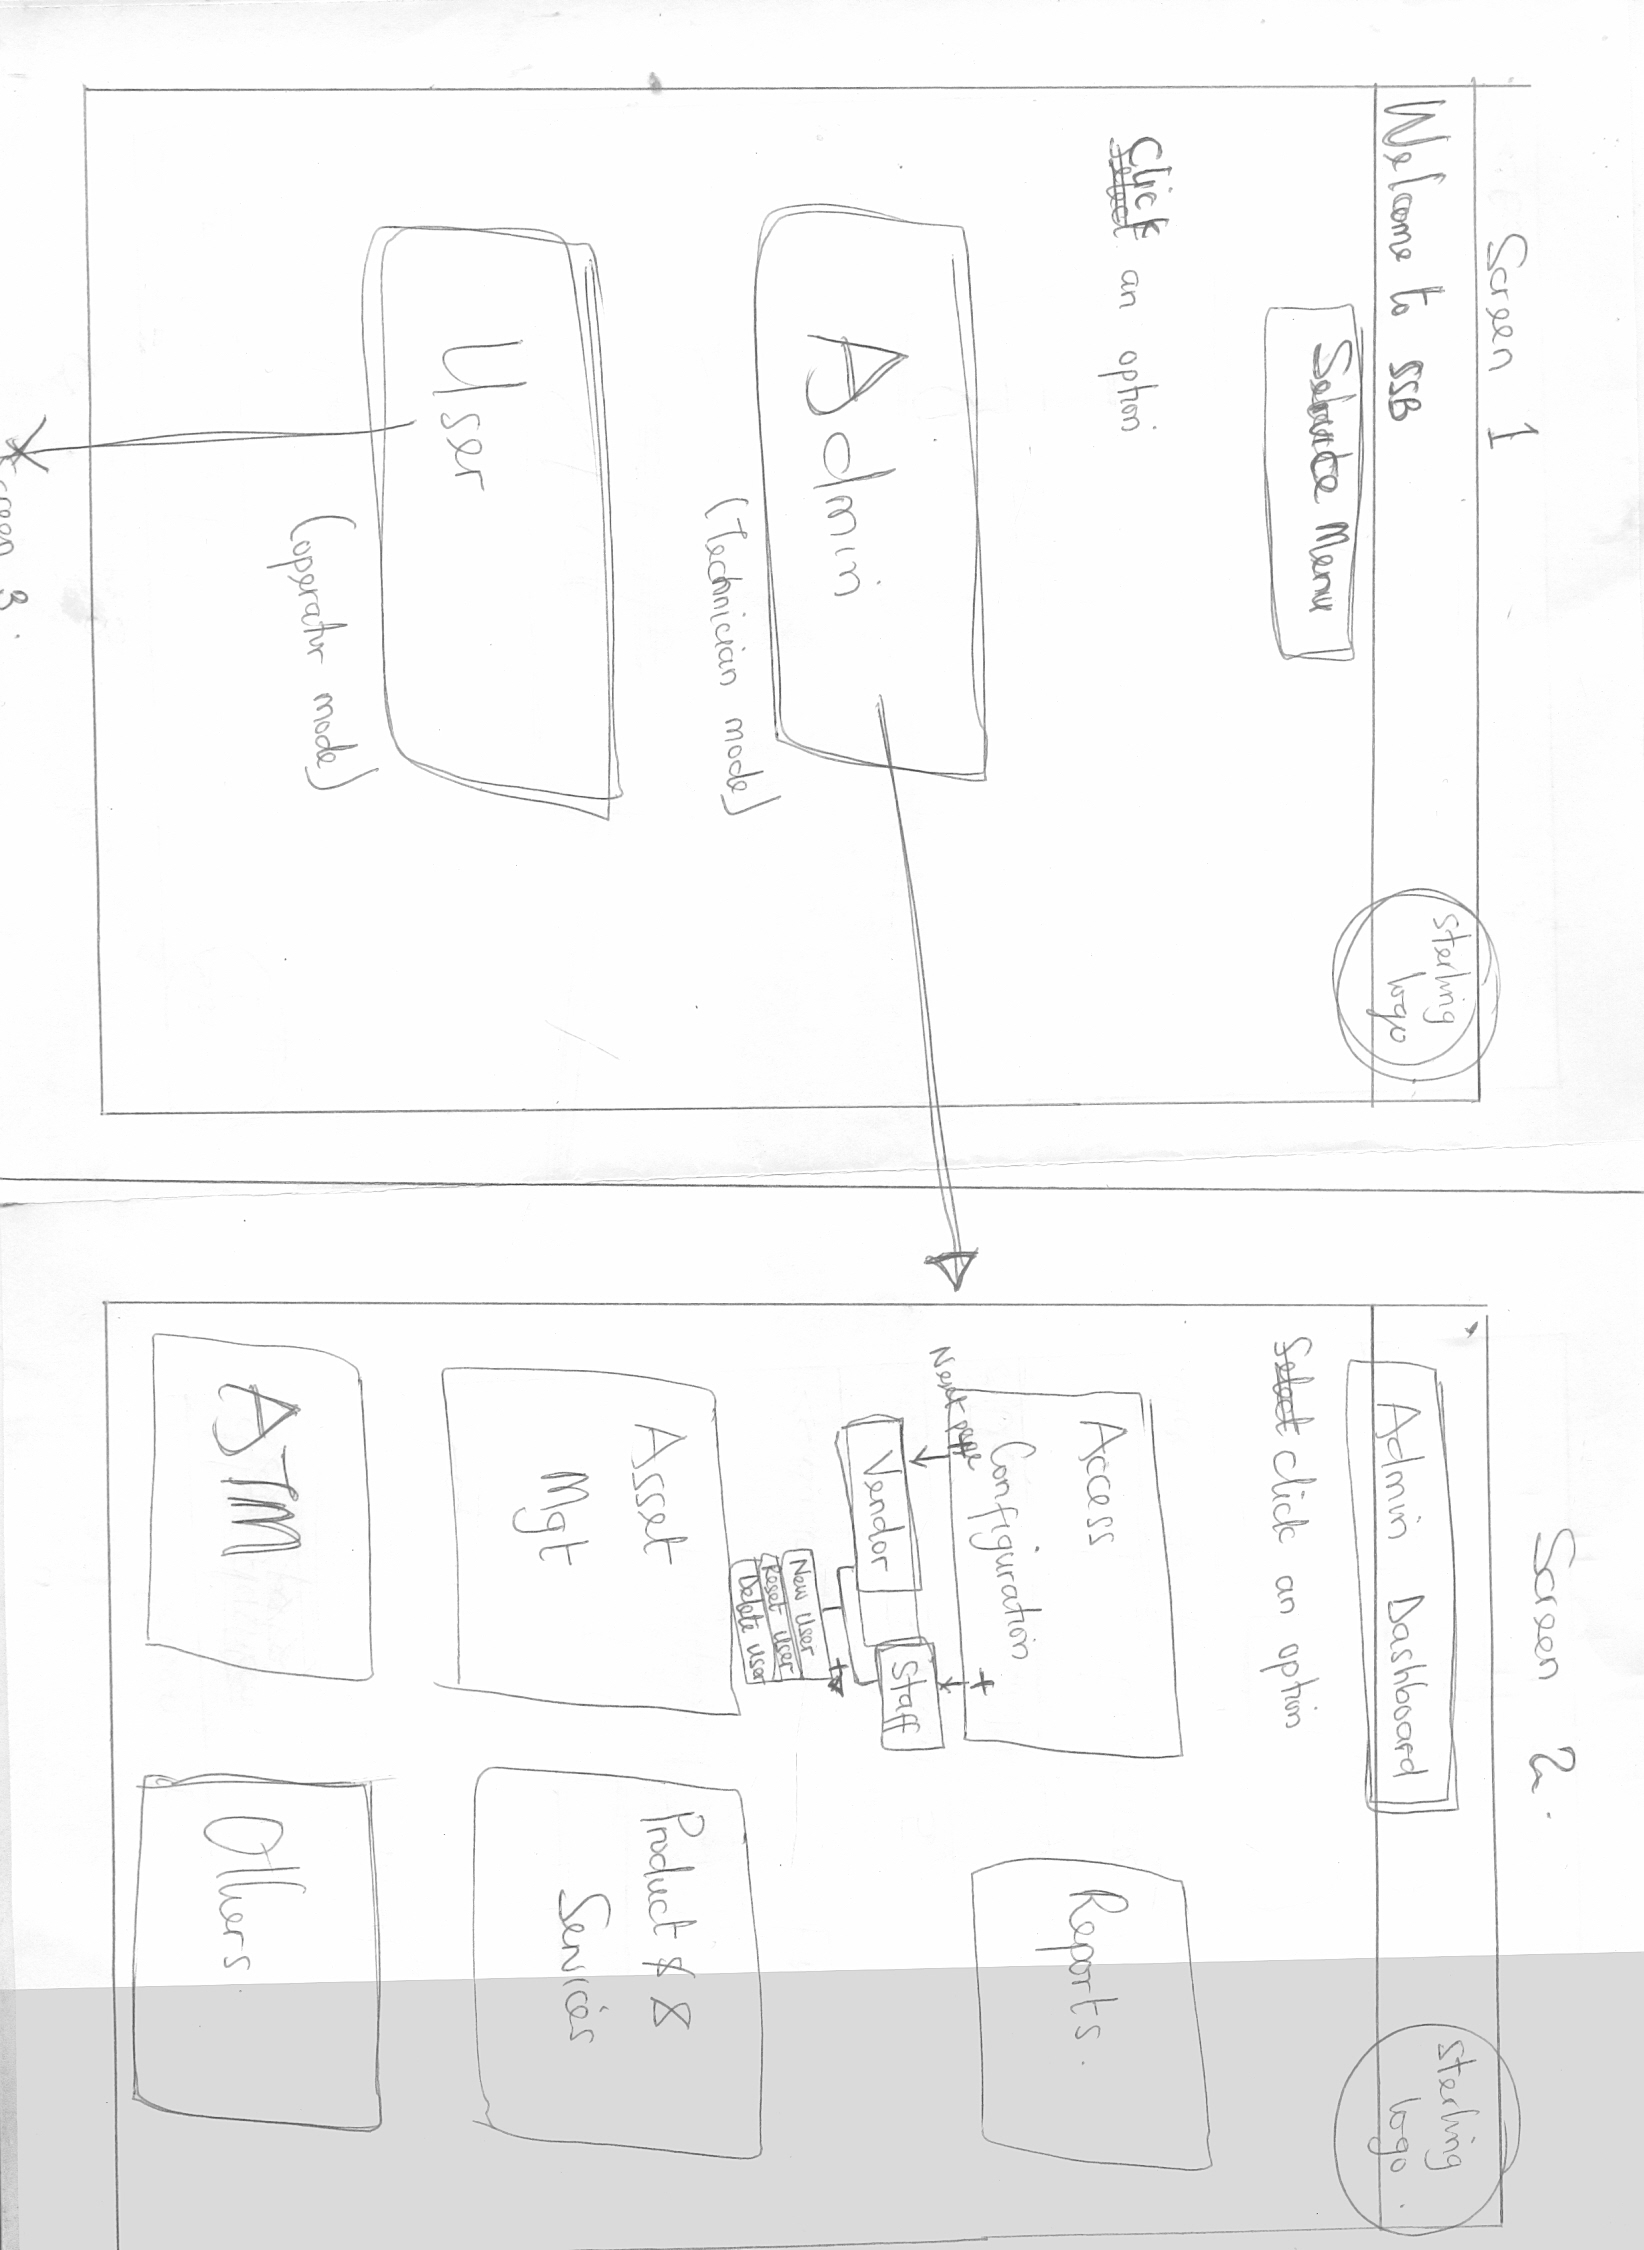 Screen 1
Welcome to SSB
Sterling
logo
Menu
Click an option
Admin
(Technician mode)
User
(operator mode)
3.
Screen 2.
Admin Dashboard
Sterling
logo.
Select click an option
Access
Configuration
Next page
Vendor
Staff
New User
Reset User
Delete User
Reports.
Asset
Mgt
Product & &
Services
ATM
Others